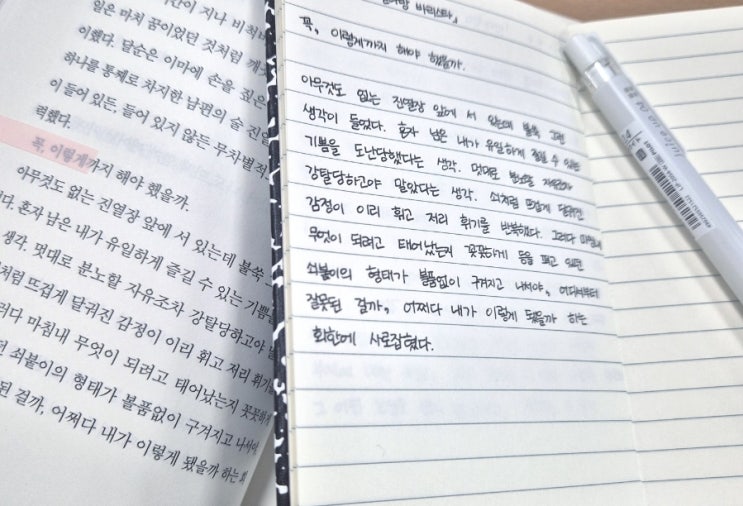 시간이 지나
일은 마치 꿈이었던 것처럼
이했다. 달순은 이마에 손을 짚은
하나를 통째로 차지한 남편의 술 진열
이 들어 있든, 들어 있지 않든 무차별적
력했다.
꼭, 이렇게까지 해야 했을까.
아무것도 없는 진열장 앞에 서 있는데 불쑥
다. 혼자 남은 내가 유일하게 즐길 수 있는 기쁨을
생각. 멋대로 분노할 자유조차 강탈당하고야
처럼 뜨겁게 달궈진 감정이 이리 휘고 저리 휘기
러다 마침내 무엇이 되려고 태어났는지 꼿꼿하게
던 쇠붙이의 형태가 볼품없이 구겨지고 나서야,
된 걸까, 어쩌다 내가 이렇게 됐을까 하는
바리스타」
꼭, 이렇게까지 해야 했을까.
아무것도 없는 진열장 앞에 서 있는데 불쑥 그런
생각이 들었다. 혼자 남은 내가 유일하게 즐길 수 있는
기쁨을 도난당했다는 생각. 멋대로 분노할 자유조차
강탈당하고야 말았다는 생각. 쇠처럼 뜨겁게 달궈진
감정이 이리 휘고 저리 휘기를 반복했다. 그러다 마침내
무엇이 되려고 태어났는지 꼿꼿하게 등을 펴고 있던
쇠붙이의 형태가 볼품없이 구겨지고 나서야, 어디서부터
잘못된 걸까, 어쩌다 내가 이렇게 됐을까 하는
회한에 사로잡혔다.